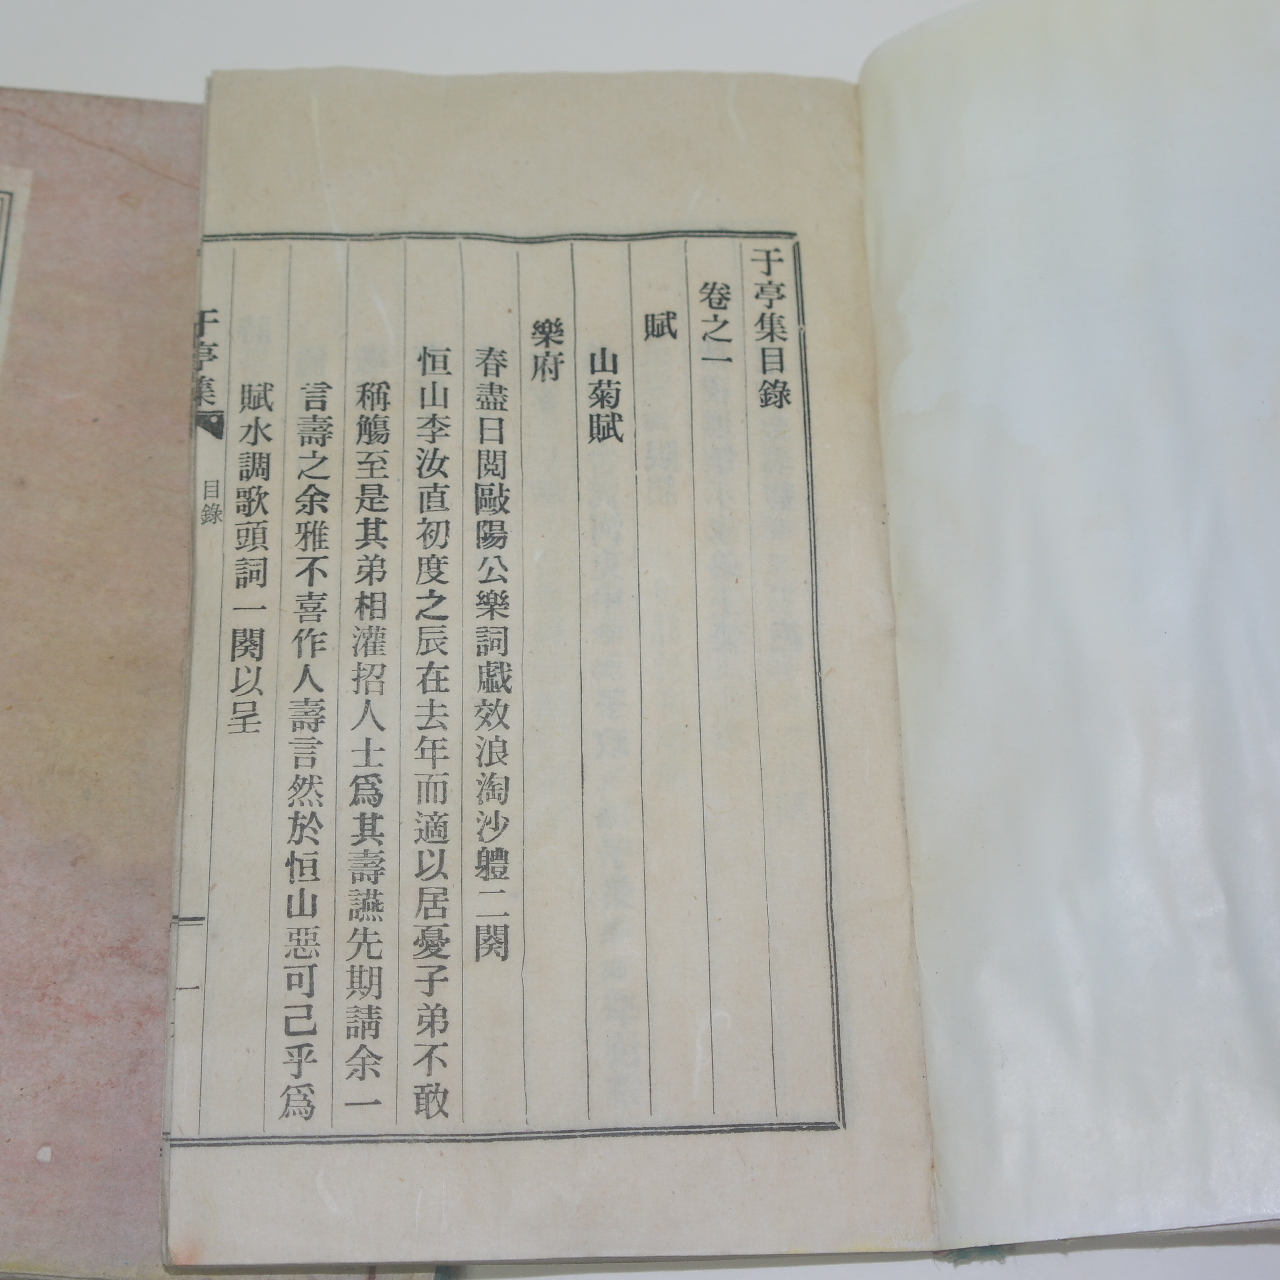 于亭集目錄
卷之一
賦
山菊賦
樂府
春盡日閱歐陽公樂詞戱效浪淘沙軆二闋
恒山李汝直初度之辰在去年而適以居憂子弟不敢
稱觴至是其弟相灌招人士爲其壽讌先期請余一
言壽之余雅不喜作人壽言然於恒山惡可己乎爲
賦水調歌頭詞一闋以呈
于亭集
目錄
一